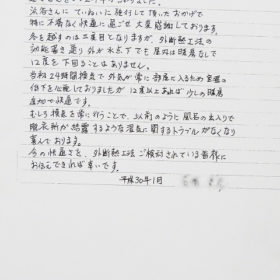 法名さんに ていねいに 検討して頂いたおかげで
特に不備なく快適に過ごせ大変感謝しております。
冬を越すのは5年目となりますが、外断熱工法の
効能著き通り外が氷点下でも屋内は暖房なしで
12度を下回ることはありません。
当初24時間換気で外気が常に部屋に入るため室温の
低下を心配しておりましたが12度以上あれば少しの暖房
追加で快適です。
むしろ換気を常に行うことで、以前のように風呂の出入りで
脱衣所が結露するような湿気に関するトラブルがなくなり
喜んでおります。
今の快適さを、外断熱工法ご検討されている皆様に
お伝えできれば幸いです。
平成30年1月